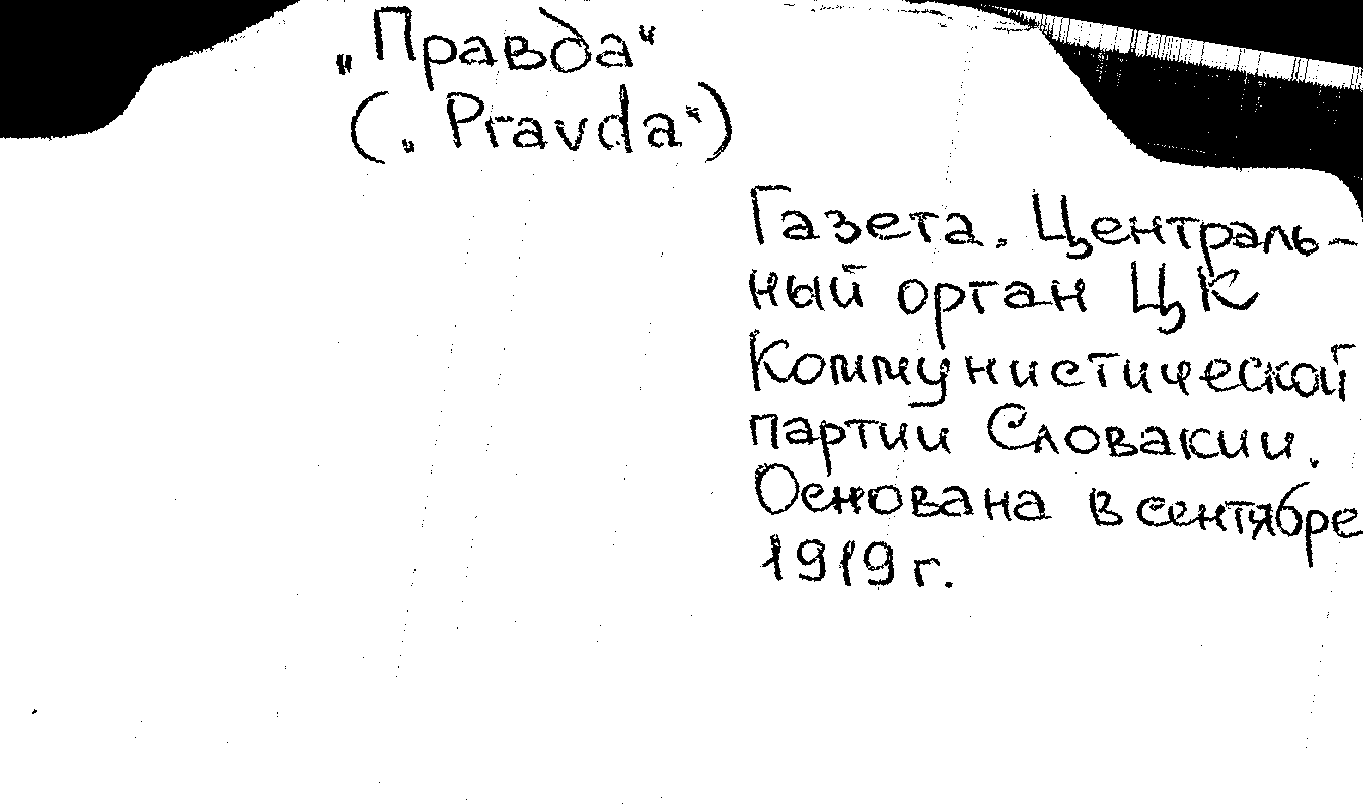 „Правда“
(„Pravda“)
Газета. Централь-
ный орган ЦК
Коммунистической
партии Словакии.
Основана в сентябре
1919 г.